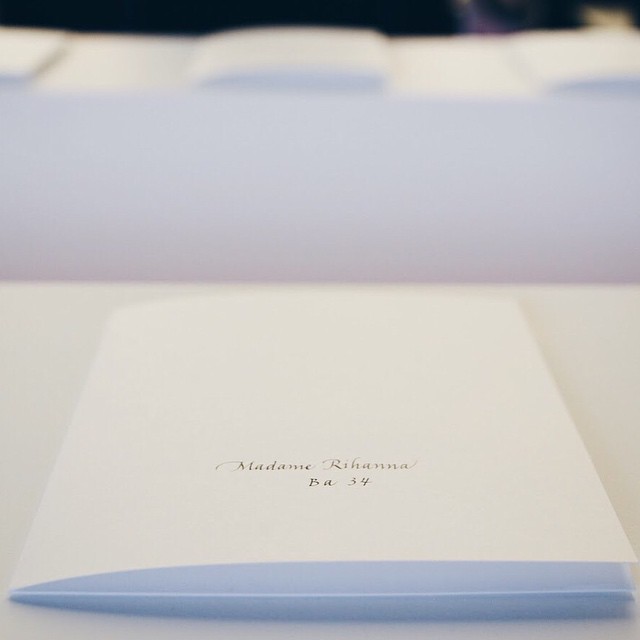 Madame Rihanna
Ba 34